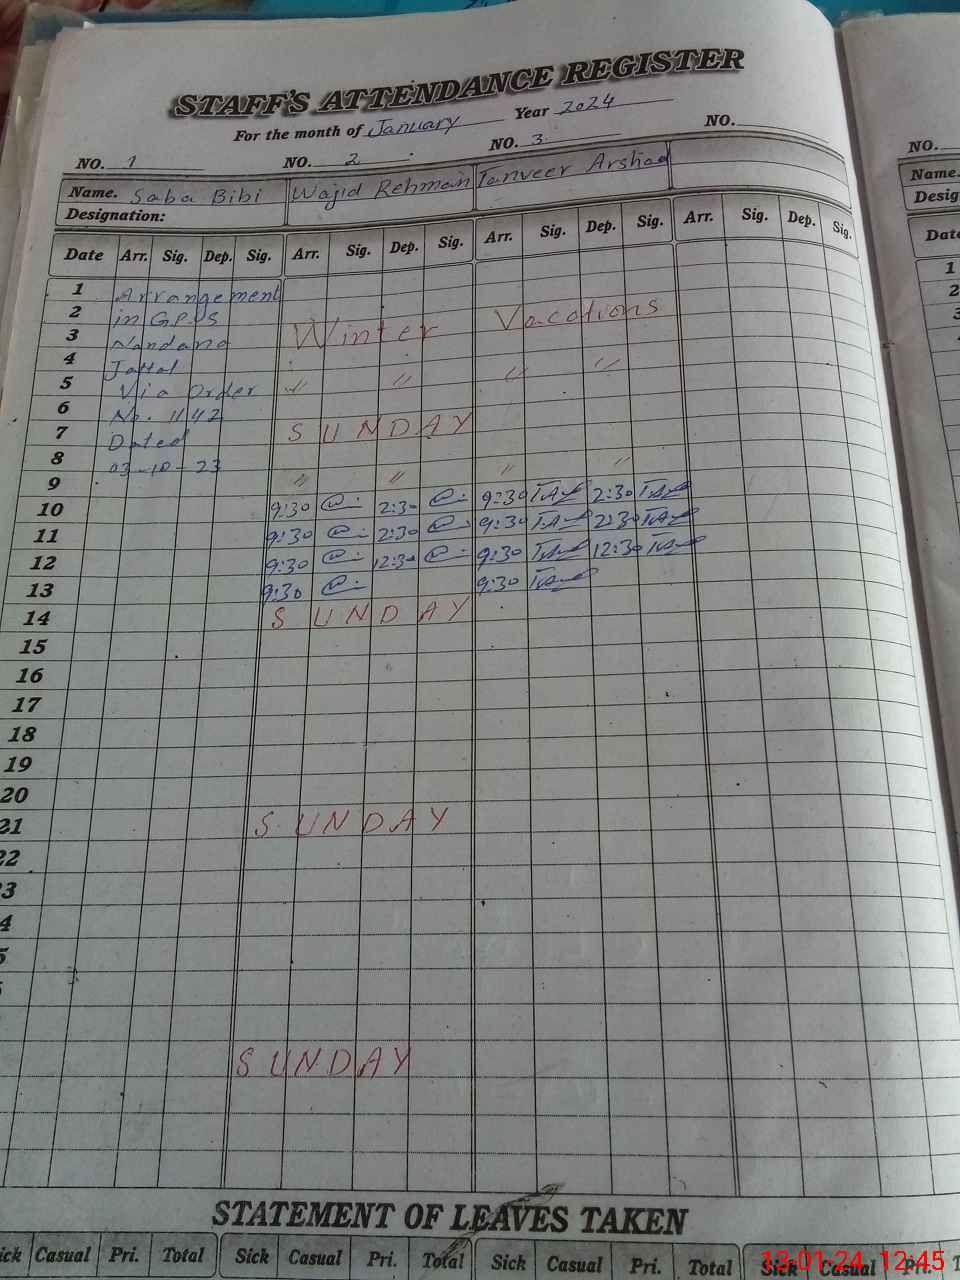 STAFF'S ATTENDANCE REGISTER
For the month of January Year 2024
NO. 1 NO. 2 NO. 3 NO. NO.
Name. Saba Bibi Wajid Rehman Tanveer Arshad Name.
Designation: Desig
Date Arr. Sig. Dep. Sig. Arr. Sig. Dep. Sig. Arr. Sig. Dep. Sig. Arr. Sig. Dep. Sig. Date
1 Arrangement 1
2 in GPS 2
3 Nandana Winter Vacations 3
4 Jattal
5 Via Order " " " "
6 No. 1142
7 Dated S U N D A Y
8 03-10-23
9 " " " "
10 9:30 2:30 9:30 2:30
11 9:30 2:30 9:30 2:30
12 9:30 12:30 9:30 12:30
13 9:30 9:30
14 S U N D A Y
15
16
17
18
19
20
21 S U N D A Y
22
3
4
5
SUNDAY
STATEMENT OF LEAVES TAKEN
ick Casual Pri. Total Sick Casual Pri. Total Sick Casual Pri. Total Sick Casual Pri. T
13.01.24 12:45